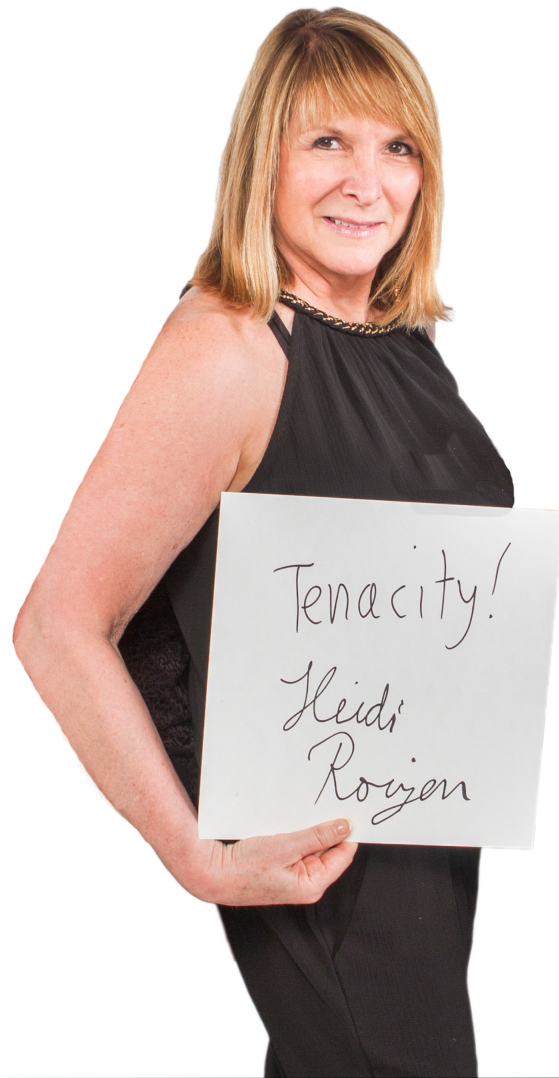 Tenacity!
Heidi
Roijen